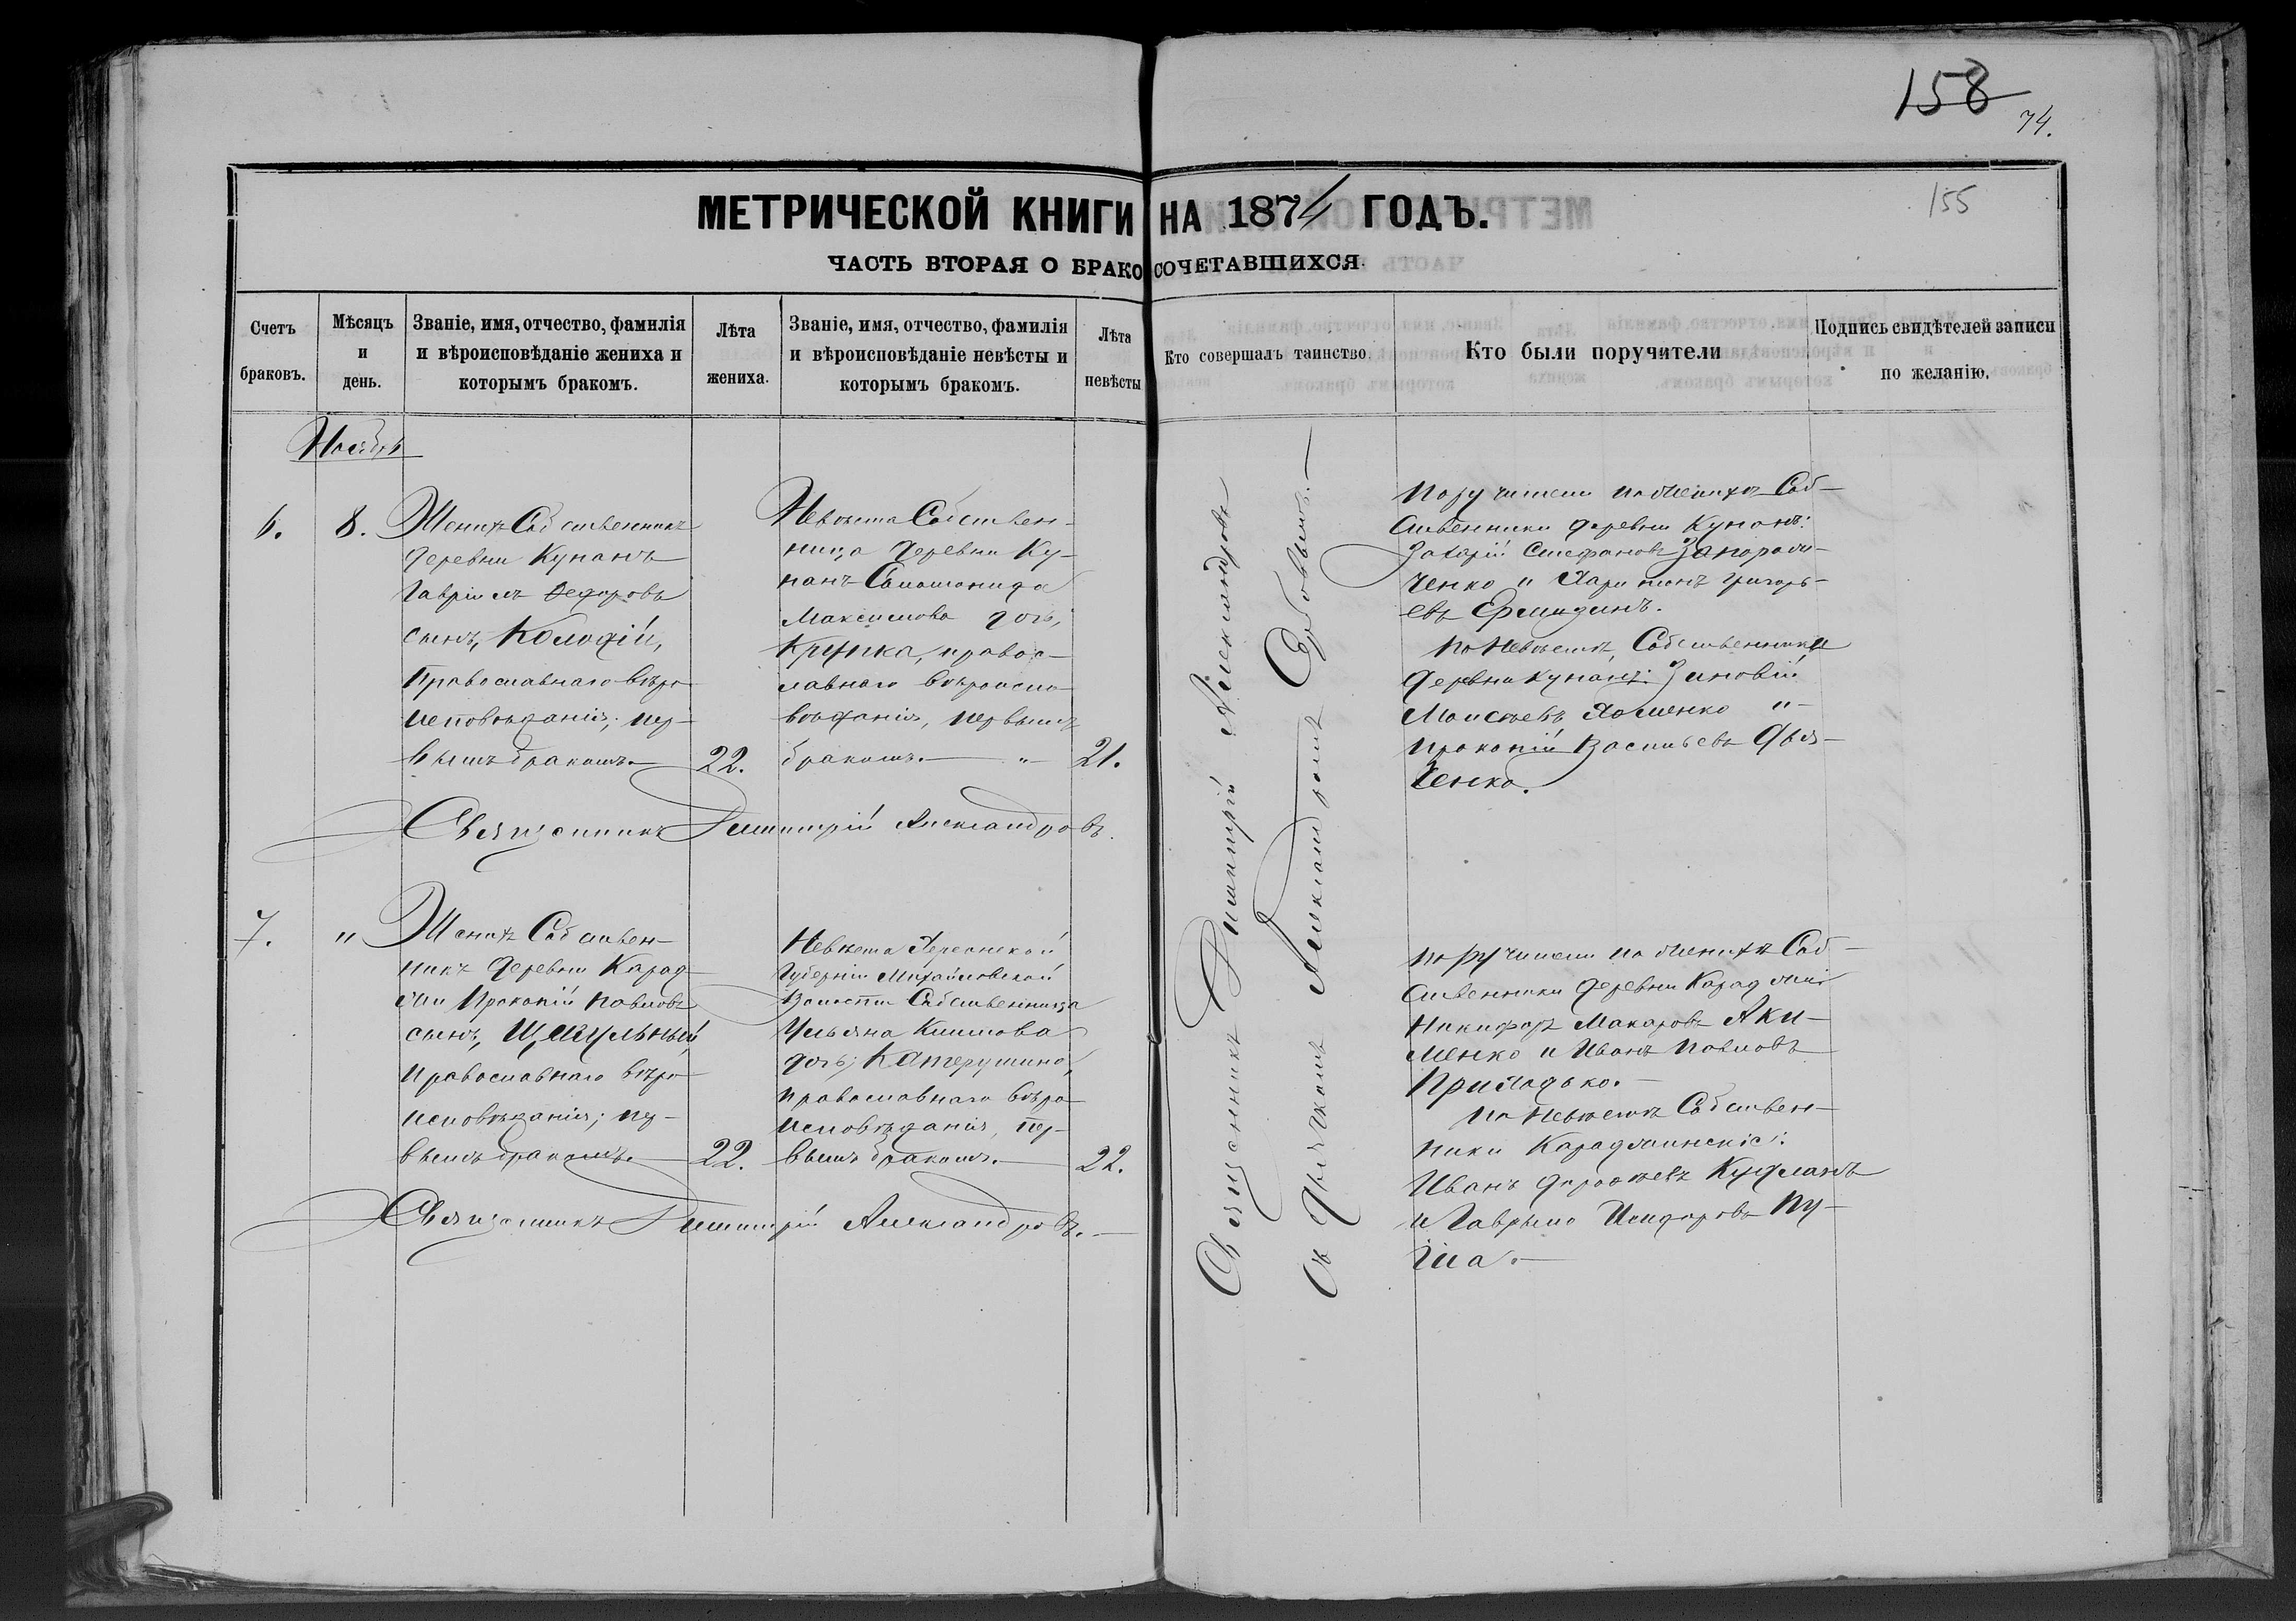 158
74.
155
МЕТРИЧЕСКОЙ КНИГИ НА 1874 ГОДЪ.
ЧАСТЬ ВТОРАЯ О БРАКОСОЧЕТАВШИХСЯ.
Счетъ
браковъ.
Мѣсяцъ
и
день.
Званіе, имя, отчество, фамилія
и вѣроисповѣданіе жениха и
которымъ бракомъ.
Лѣта
жениха.
Званіе, имя, отчество, фамилія
и вѣроисповѣданіе невѣсты и
которымъ бракомъ.
Лѣта
невѣсты
Кто совершалъ таинство.
Кто были поручители
Подпись свидѣтелей записи
по желанію.
Ноябрь
6.
8.
Женихъ Собственникъ
деревни Кунанъ
Гавріилъ Федоровъ
сынъ, Колодій,
Православнаго вѣро-
исповѣданія, пер-
вымъ бракомъ.
22.
Невѣста Собствен-
ница деревни Ку-
нанъ
Максимова дочь,
Крупка, правос-
лавнаго вѣроиспо-
вѣданія, первымъ
бракомъ. "
21.
Священникъ Димитрій Александровъ.
Священникъ Димитрій Александровъ
съ Дьячкомъ Александромъ
Поручители по женихѣ Соб-
ственники деревни Кунанъ:
Захарій Стефановъ Запорож-
ченко и Харитонъ Григорь-
евъ
по невѣстѣ, Собственники
деревни Кунанъ: Зиновій
Моисѣевъ Хоменко и
Прокопій Васильевъ Дья-
ченко.
7.
"
Женихъ Собствен-
никъ деревни Карад-
жи Прокопій Павловъ
сынъ, Щегульный,
Православнаго вѣро-
исповѣданія; пер-
вымъ бракомъ.
22.
Невѣста Херсонской
Губерніи Михайловской
Волости Собственница
Ульяна Климова
дочь, Катерушина,
православнаго вѣро-
исповѣданія, пер-
вымъ бракомъ.
22.
Священникъ Димитрій Александровъ.
Поручители по женихѣ Соб-
ственники деревни Караджи
Никифоръ Макаровъ Аки-
менко и Иванъ Павловъ
Присядько.
по невѣстѣ Собствен-
ники Караджинскіе:
Иванъ Дорофѣевъ
и Гаврыло Исидоровъ Пу-